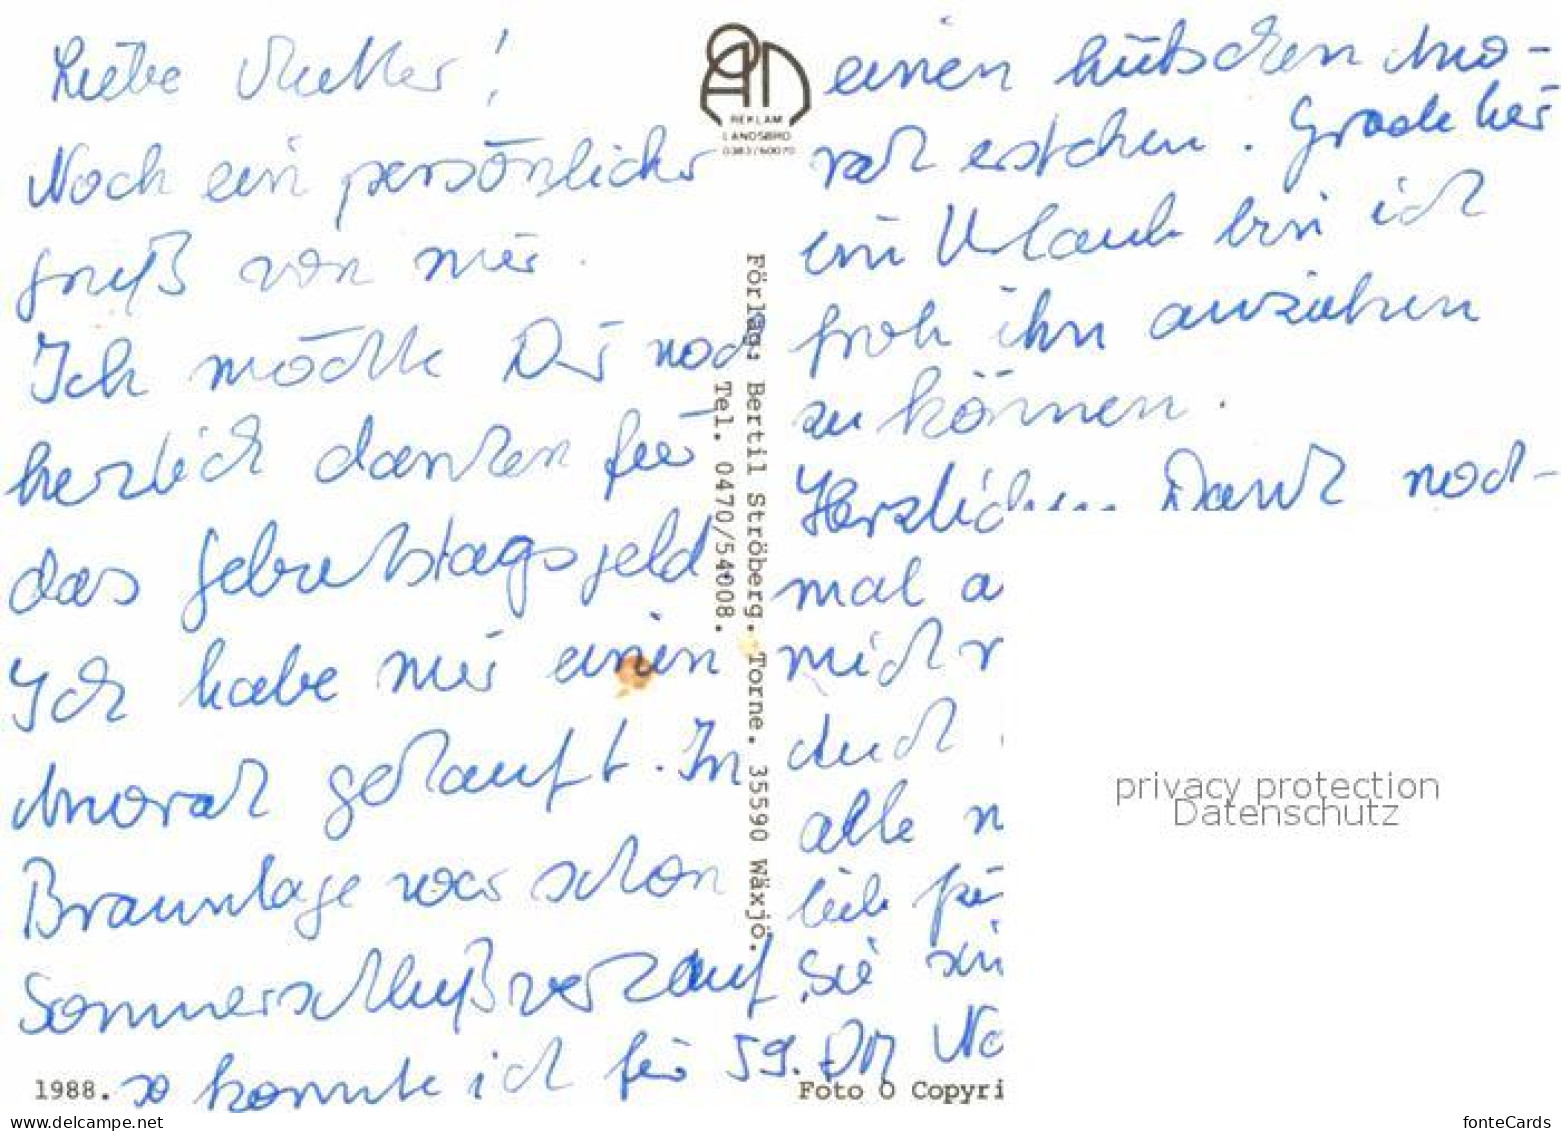 Liebe Mutter!
Noch ein persönlicher
Gruß von mir.
Ich möchte Dir noch
herzlich danken für
das Geburtstagsgeld.
Ich habe mir einen
Anorak gekauft. In
Braunlage war schon
Sommerschlußverkauf,
so konnte ich für 59. DM
einen hübschen Ano-
rak erstehen. Grade hier
im Urlaub bin ich
froh ihn anziehen
zu können.
Herzlichen Dank noch-
mal a
mich
Auch
alle n
lieb für
Sie sin
No
AD
REKLAM
LANDSBRO
0383/60070
Förlag: Bertil Ströberg. Torne. 35590 Wäxjö.
Tel. 0470/54008.
1988.
Foto O Copyri
privacy protection
Datenschutz
www.delcampe.net
fonteCards